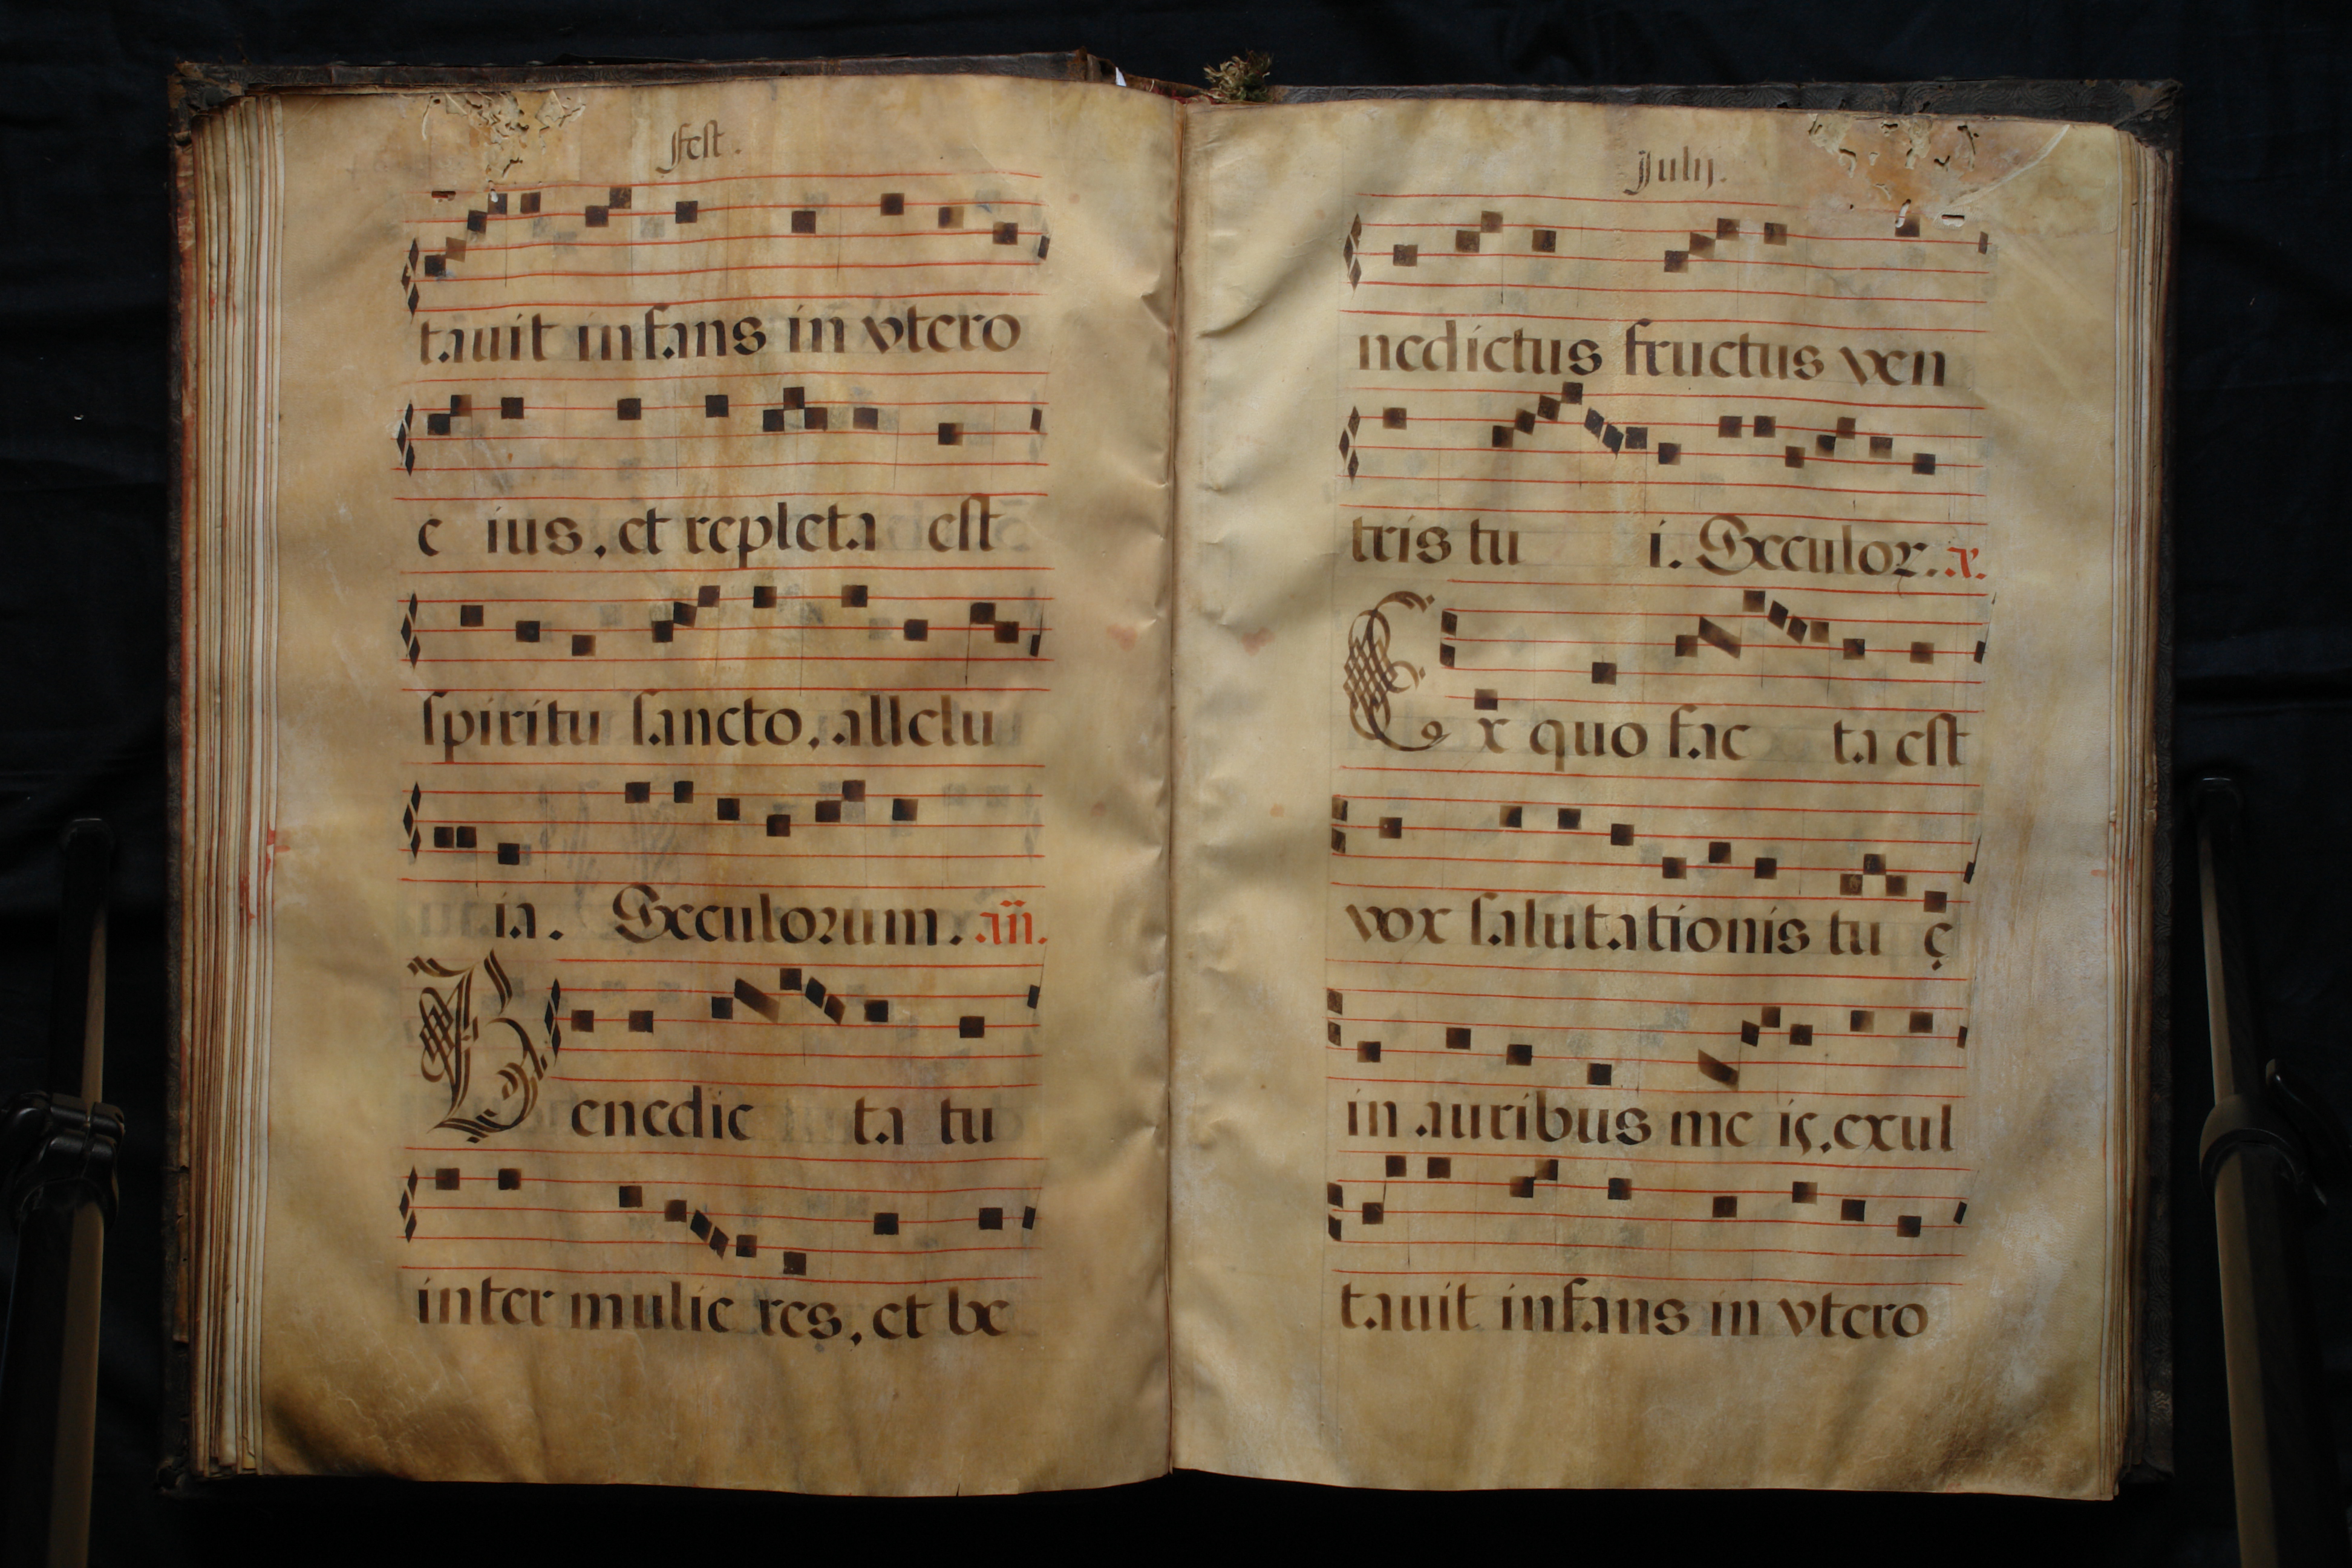 Fest.
tauit infans in vtero
e ius, et repleta est
spiritu sancto, allelu
ia. Sęculorum. añ.
Benedic ta tu
inter mulie res, et be
Julij.
nedictus fructus ven
tris tu i. Sęculor. a.
Ex quo fac ta est
vox salutationis tu ę
in auribus me is, exul
tauit infans in vtero